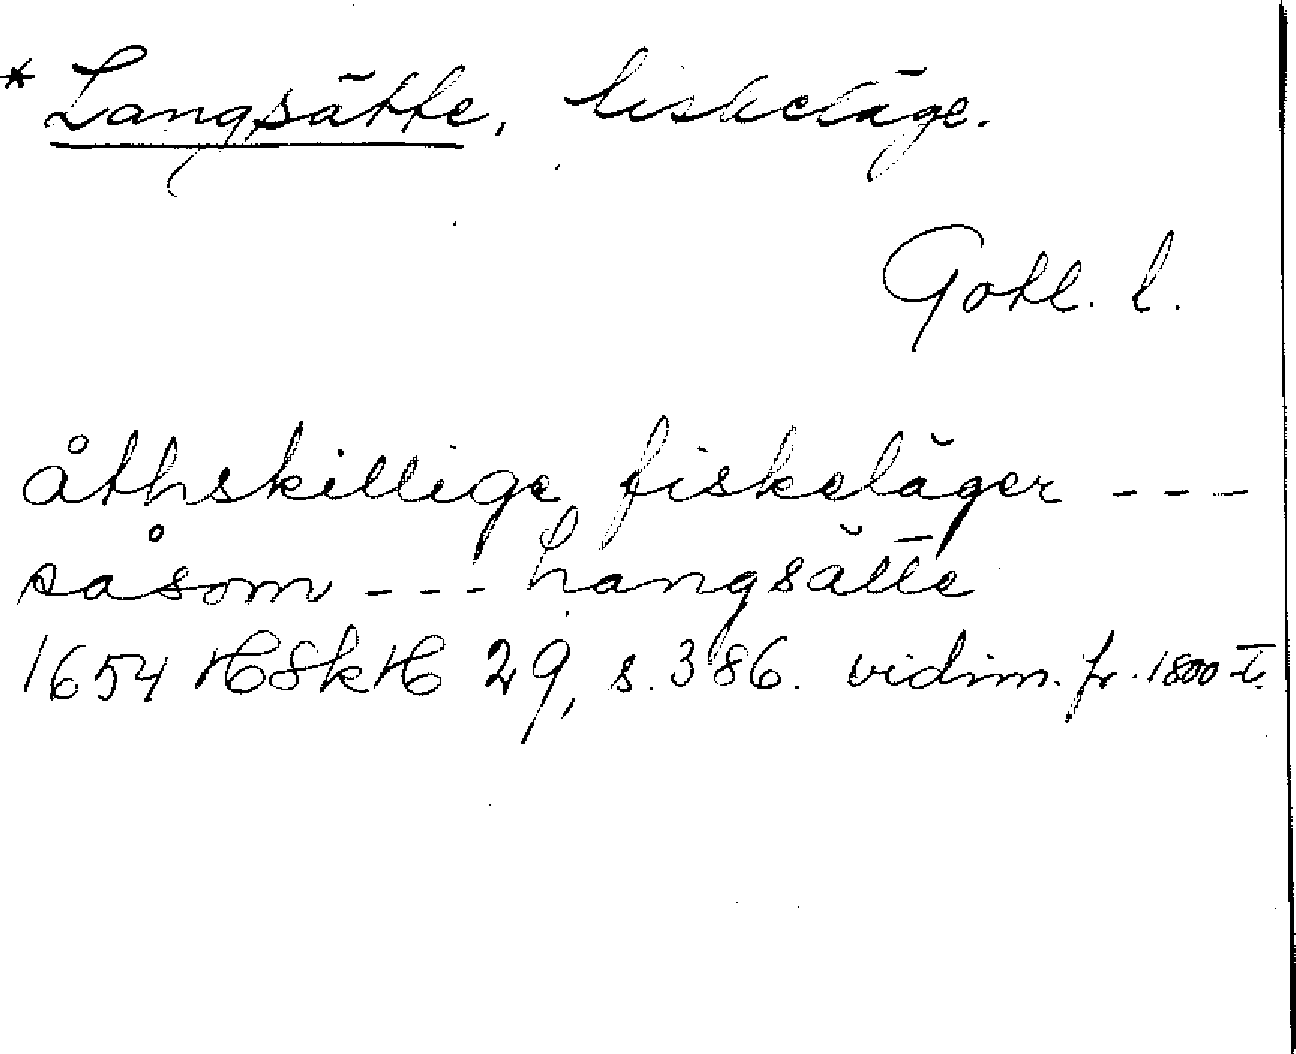 * Langsätte, fiskeläge.
Gotl. l.
åthskillige fiskeläger - - -
såsom - - - Langsätte
1654 HSkH 29, s. 386. vidim. fr. 1800-t.